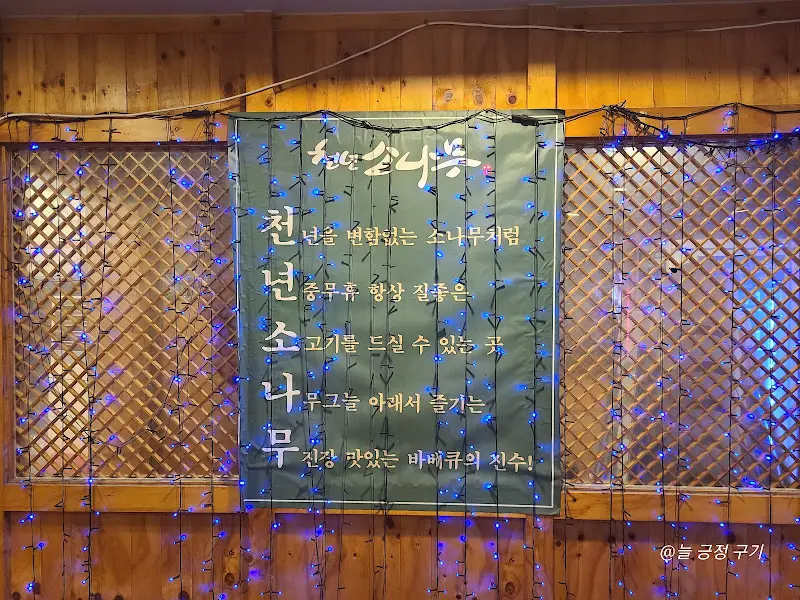 천년소나무
천년을 변함없는 소나무처럼
년중무휴 항상 질좋은
소고기를 드실 수 있는 곳
나무그늘 아래서 즐기는
무진장 맛있는 바베큐의 진수!
@늘 긍정 구기